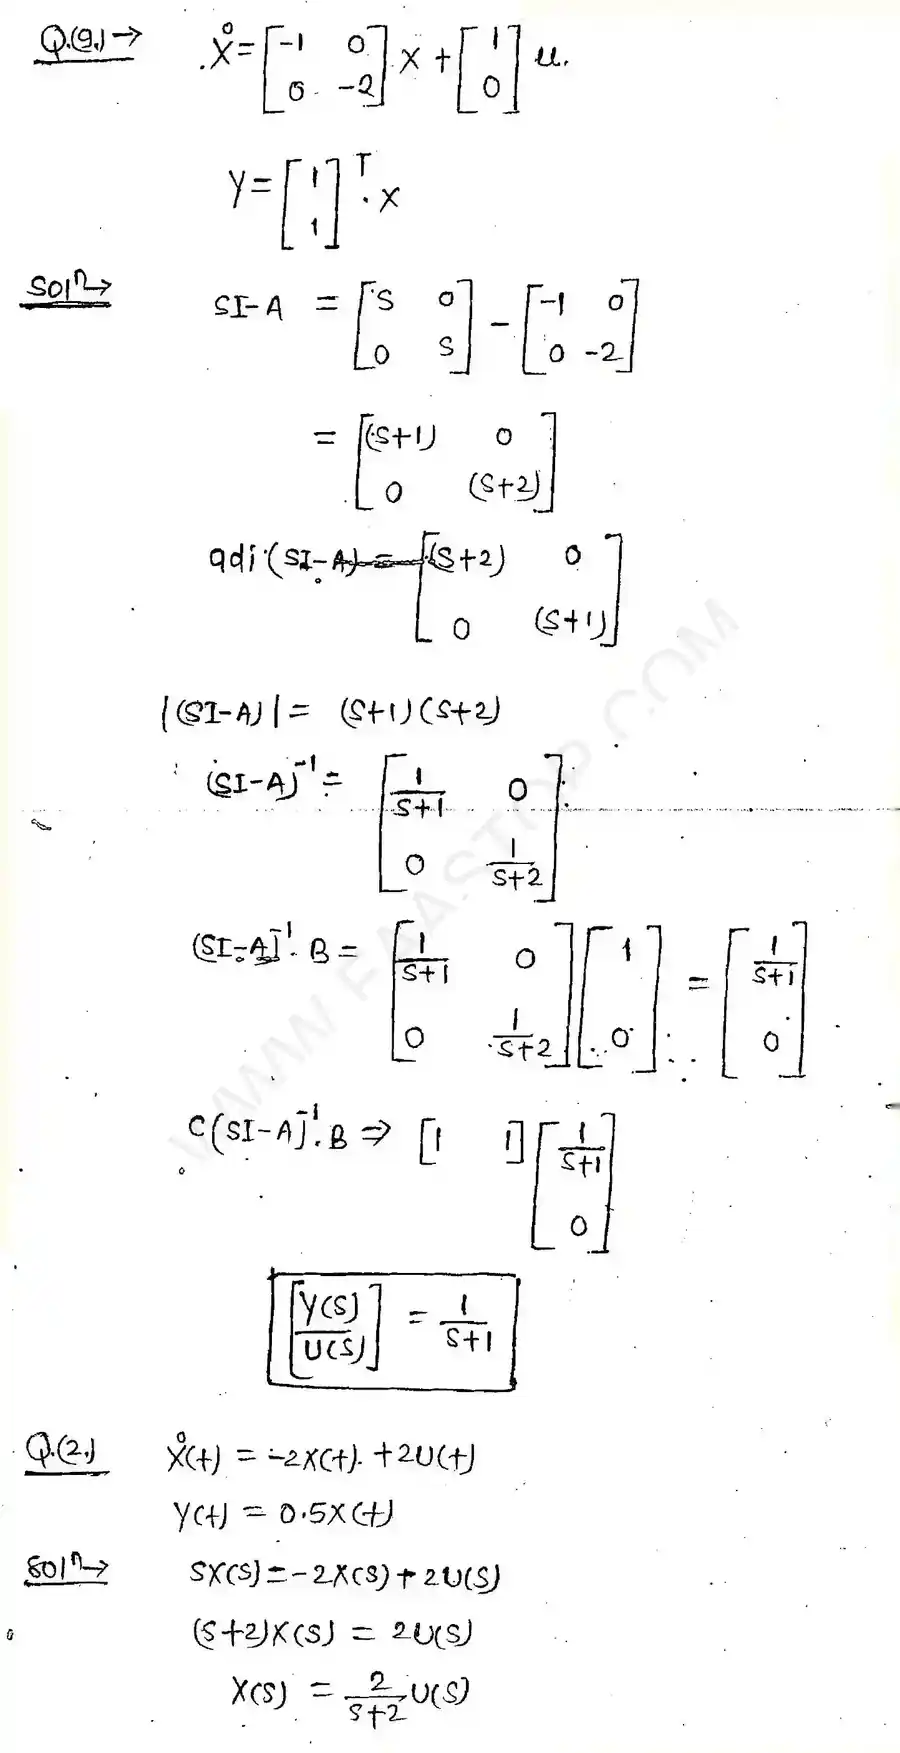 Q.(9.) → Ẋ = [-1 0; 0 -2] X + [1; 0] u.
Y = [1; 1]^T . X
Solⁿ → SI-A = [S 0; 0 S] - [-1 0; 0 -2]
= [(S+1) 0; 0 (S+2)]
adj.(SI-A) = [(S+2) 0; 0 (S+1)]
|(SI-A)| = (S+1)(S+2)
(SI-A)^-1 = [1/(S+1) 0; 0 1/(S+2)]
(SI-A)^-1 . B = [1/(S+1) 0; 0 1/(S+2)] [1; 0] = [1/(S+1); 0]
C(SI-A)^-1 . B ⇒ [1 1] [1/(S+1); 0]
[Y(S)/U(S)] = 1/(S+1)
Q.(2.) Ẋ(t) = -2X(t). + 2U(t)
Y(t) = 0.5X(t)
Solⁿ → SX(S) = -2X(S) + 2U(S)
(S+2)X(S) = 2U(S)
X(S) = 2/(S+2) U(S)